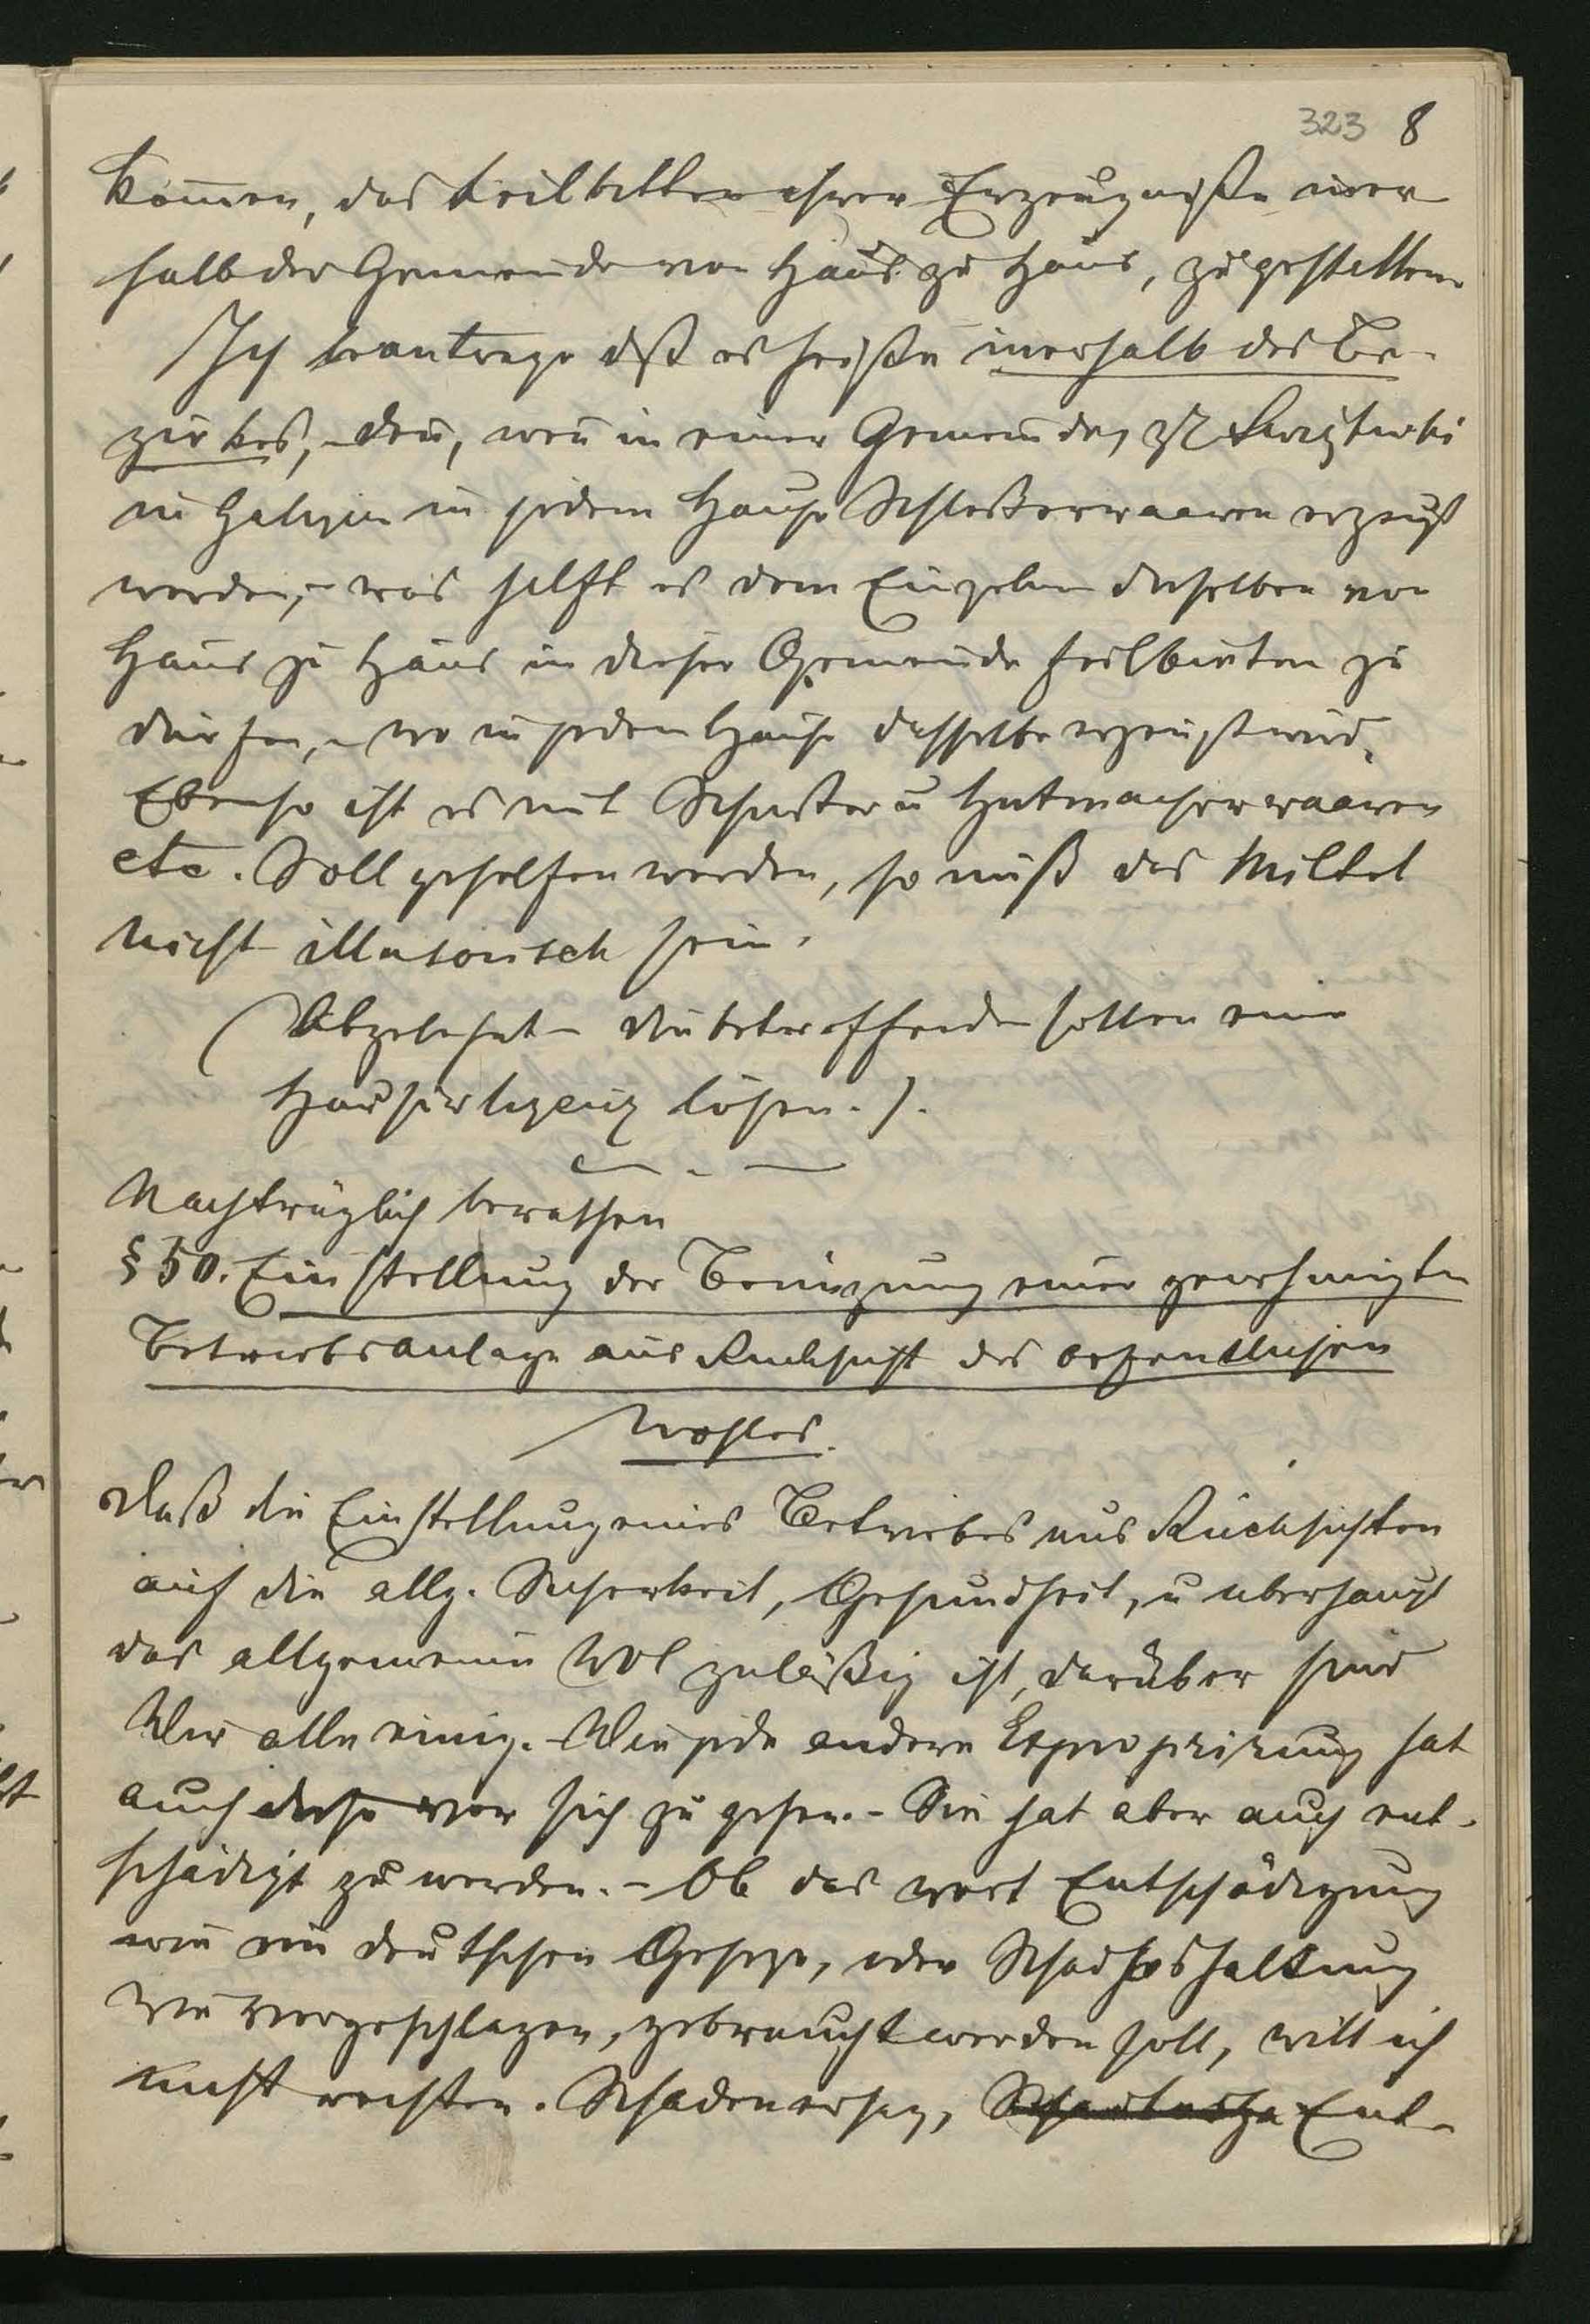 323 8
kom̄en, das Feilbitten ihrer Erzeugniße iner
halb der Gemeinde von Haus zu Haus, zu gestatten.
Ich beantrage dß es heiße inerhalb des Be-
zirkes, – den̄, wen̄ in einer Gemeinde, zB
in Galizien in jedem Hause Schloßerwaaren erzeugt
werden, – was hilft es dem Einzelnen dieselben von
Haus zu Haus in dieser Gemeinde feilbieten zu
dürfen, – wo in jedem Hause dasselbe erzeugt wird.
Ebenso ist es mit Schuster u Hutmacherwaaren
etc. Soll geholfen werden, so muß das Mittel
nicht illusorisch sein.
(Abgelehnt – die betreffenden sollen eine
Hausirlizenz lösen.).
Nachträglich berathen
§ 50. Einstellung der Benüzung einer genehmigten
Betriebsanlage aus Rücksicht des oefentlichen
Wohles.
Daß die Einstellung eines Betriebes aus Rücksichten
auf die allg. Sicherheit, Gesundheit, u uberhaupt
das allgemeine Wol zuläßig ist, darüber sind
Wir alle einig. – Wie jede andere Expropriirung hat
auch diese vor sich zu gehen. – Sie hat aber auch ent-
schädigt zu werden. – Ob das wort Entschädigung
wie im deutschen Geseze, oder Schadloshaltung
wie vorgeschlagen, gebraucht werden soll, will ich
nicht rechten. Schadenersaz, Ent-